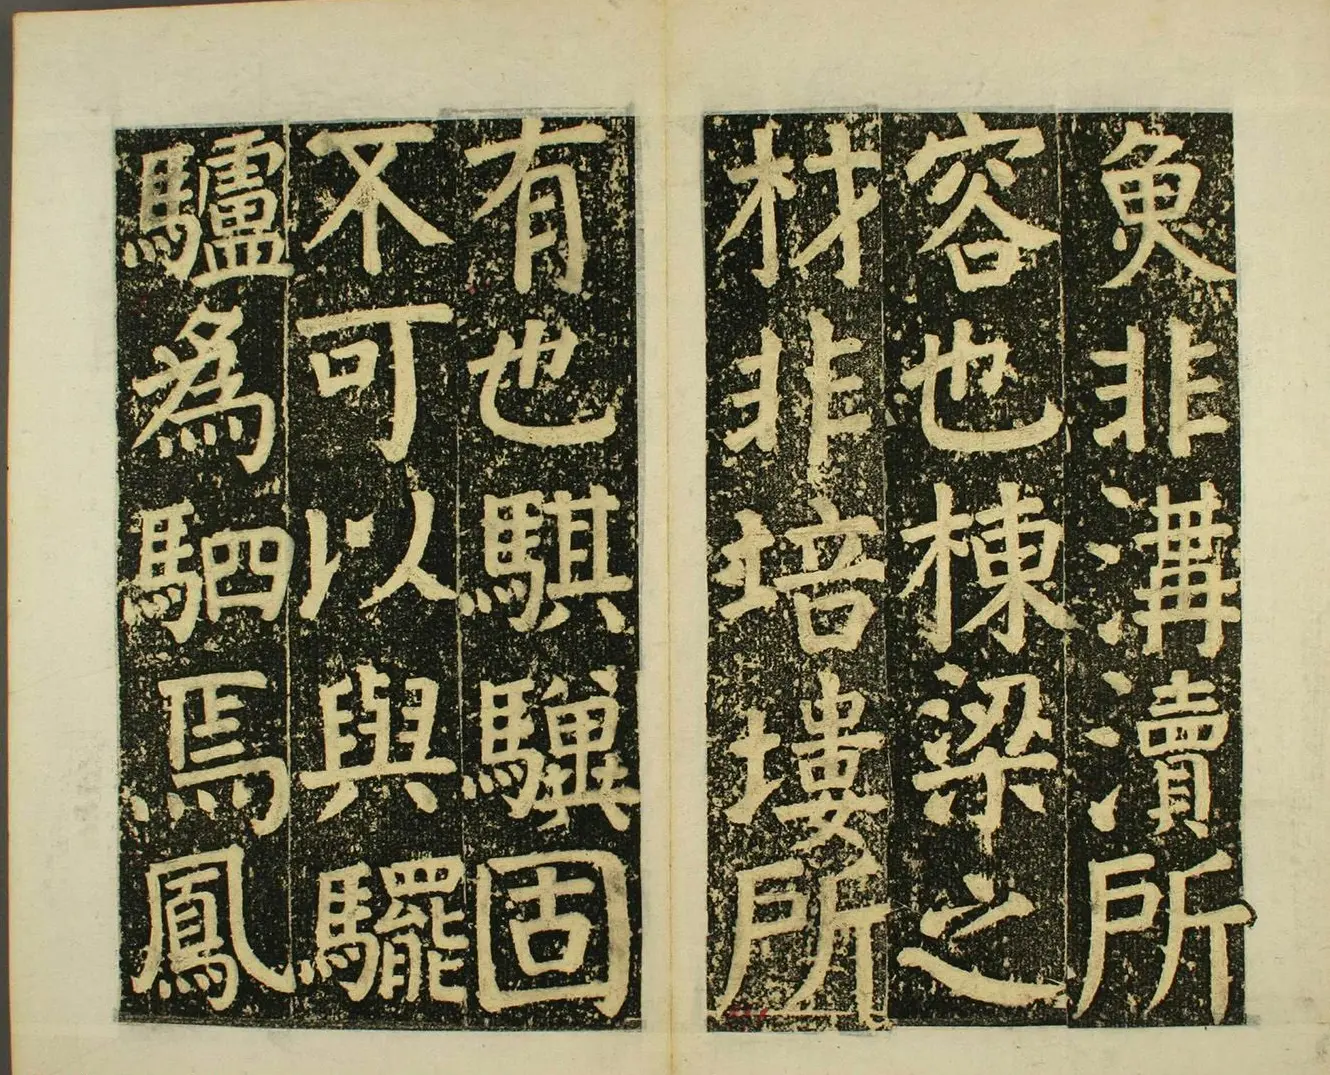 魚非溝瀆所
容也棟梁之
材非培塿所
有也騏驥固
不可以與驪
驢為駟焉鳳